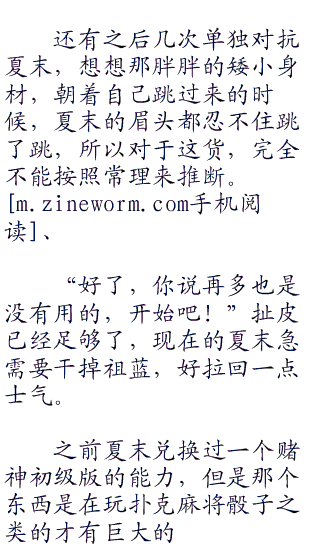 还有之后几次单独对抗
夏末，想想那胖胖的矮小身
材，朝着自己跳过来的时
候，夏末的眉头都忍不住跳
了跳，所以对于这货，完全
不能按照常理来推断。
[m.zineworm.com手机阅
读]、
“好了，你说再多也是
没有用的，开始吧！”扯皮
已经足够了，现在的夏末急
需要干掉祖蓝，好拉回一点
士气。
之前夏末兑换过一个赌
神初级版的能力，但是那个
东西是在玩扑克麻将骰子之
类的才有巨大的